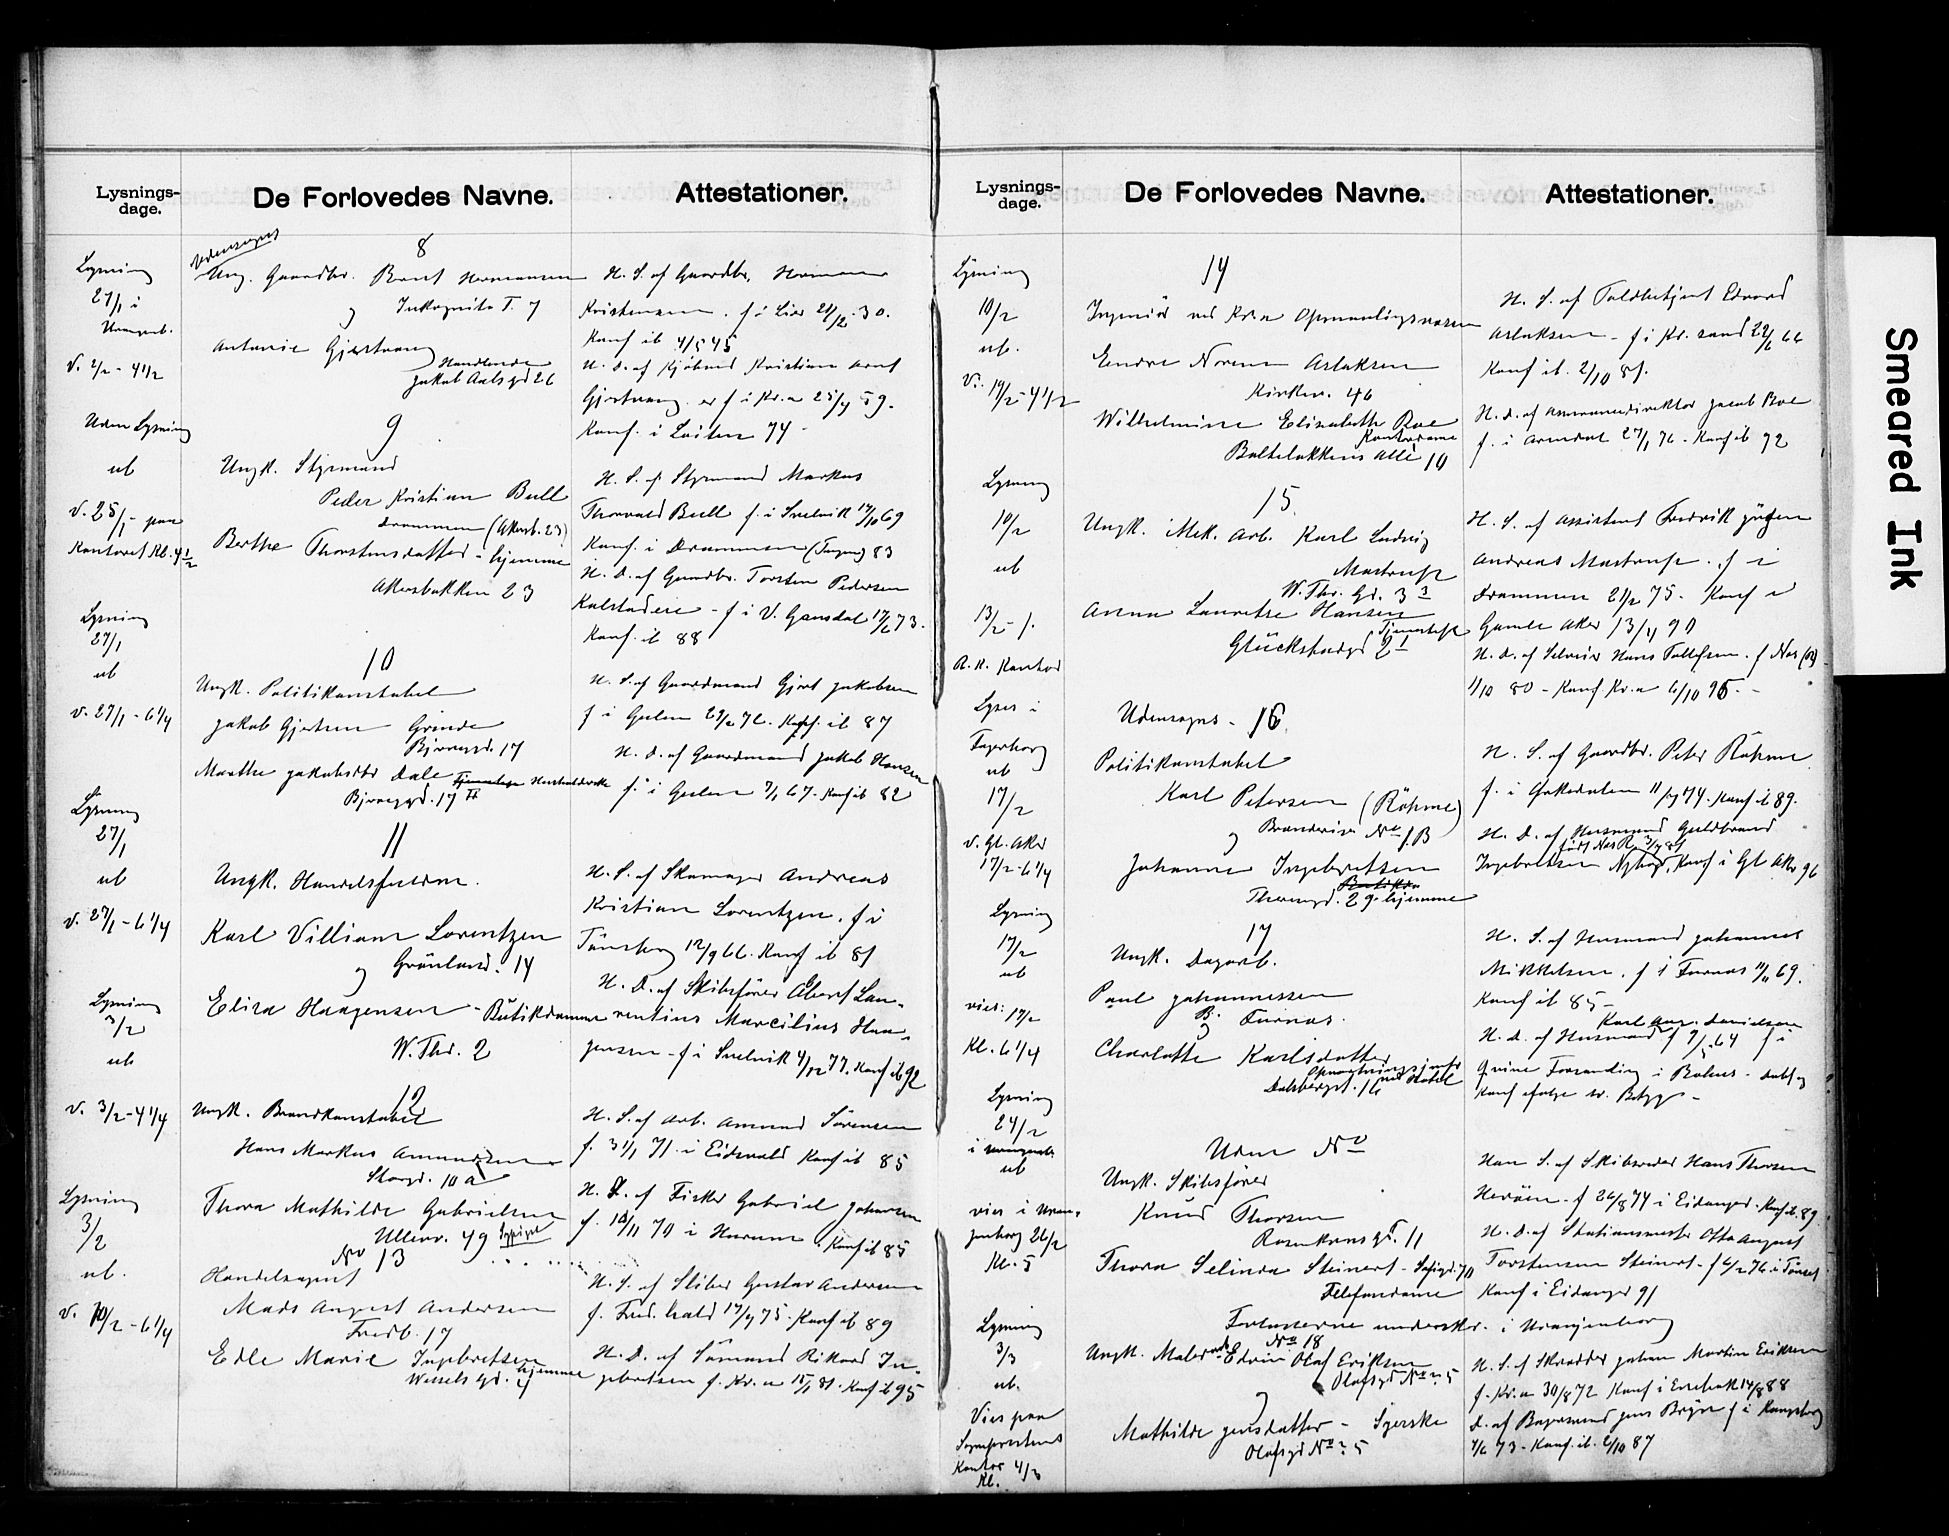 Lysnings-
dage.
De Forlovedes Navne.
Attestationer.
Udensogns
8
Lysning
27/1 i
Uranienb.
V. 2/2 - 4 1/2
Ung. Gaardbr. Bernt Hermansen
Inkognito T. 7
og
Antonie Gjertvang
Handlende
Jakob Aalsgd 26
H. S. af Gaardbr. Herman
Kristensen. f. i Lier
Konf ib 4/5 45
H. D. af Kjøbmd Kristian Arnt
Gjertvang. er f i Kr.a 25/4 59.
Konf. i Løiten 74 -
Uden Lysning
ub
V. 25/1 - paa
Kontoret Kl. 4 1/2
9
Ungk. Styrmand
Peder Kristian Bull
Drammen (Akersb. 23)
Berthe Thorstensdatter - hjemme
Akersbakken 23
H. S. af Styrmand Markus
Thorvald Bull f. i Svelvik 17/10 69
Konf. i Drammen (Tangen) 83
H. D. af Gaardbr. Torsten Pedersen
Kalstadeie - f i V. Gausdal 17/6 73.
Konf. ib 88
Lysning
27/1
ub
v. 27/1 - 6 1/4
10
Ungk. Politikonstabel
Jakob Gjertsen Grinde
Bjerregd. 17
Marthe Jakobsdtr Dale Husholderske
Bjerregd. 17 II
H. S. af Gaardmand Gjert Jakobsen
f i Gulen 29/2 72. Konf. ib 87
H. D. af Gaardmand Jakob Hansen
f. i Gulen 7/1 67. Konf ib 82
Lysning
27/1
ub
v. 27/1 - 6 1/4
11
Ungk. Handelsfuldm.
Karl Villiam Lorentzen
og Grönland. 14
Eliza Haagensen - Butikdamme
W. Thr. 2
H. S. af Skomager Andreas
Kristian Lorentzen. f i
Tönsberg 12/9 66. Konf ib 81
H. D. af Skibsfører Albert Lau-
rentius Marcilius Haa-
gensen - f i Svelvik 4/12 77. Konf ib 92
Lysning
3/2
ub
v. 3/2 - 4 1/4
12
Ungk. Brandkonstabel
Hans Markus Amundsen
Skovgd. 10 a
Thora Mathilde Gabrielsen
Ullevv. 49 Sypige
H. S. af Arb. Amund Sörensen
f. 31/1 71 i Eidsvold Konf ib 85
H. D. af Fisker Gabriel Johansen
f. 10/11 70 i Hurum. Konf ib 85
Lysning
3/2
ub.
v. 10/2 - 6 1/4
No 13
Handelsagent
Mads August Andersen
Fredb. 17
Edle Marie Ingebretsen
hjemme
Wessels gd. 4
H. S. af Sliber Gustav Andersen
f. Fred.hald 17/4 75. Konf ib 89
H. D. af Sömand Rikard In-
gebretsen f. Kr.a 15/1 81. Konf ib 95
Lysnings-
dage.
De Forlovedes Navne.
Attestationer.
Lysning
10/2
ub.
V. 19/2 - 4 1/2
14
Ingeniör ved Kr.a Opmaalingsvæsen
Endre Noren Aslaksen
Kirkev. 46
Wilhelmine Elisabeth Boe
Kontordame
Balteløkkens Allé 10
H. S. af Toldbetjent Edvard
Aslaksen - f i Kr.sand 22/6 66
Konf ib. 2/10 81.
H. D. af Assurancedirektør Jacob Boe
f. i Arendal 27/1 76 - Konf ib 92
Lysning
10/2
ub
13/2 - 1.
R. K. Kontor
15.
Ungk. Mek. Arb. Karl Ludvig
Mastrup
W. Thr. Gd. 3 3
Anna Lauretse Hansen
Tjenestepi
Glückstadgd 2 1
H. S. af Assistent Fredrik Jürgen
Andreas Mastrup. f i
Drammen 21/2 75. Konf i
Gamle Aker 13/4 90
11/10 80 - Konf Kr.a 6/10 95. -
Lyses i
Fagerborg
ub
17/2
v. Gl. Aker
17/2 - 6 1/4
Udensogns - 16
Politikonstabel
Karl Petersen (Röhme)
og
No 1. B
Johanne Ingebretsen
Theresgd. 29. hjemme
H. S. af Gaardbr. Peter Röhme
f. i 11/4 74. Konf ib 89.
H. D. af Husmand Guldbrand
født Nes R. 3/4 81
Ingebretsen Konf i Gl Aker 96
Lysning
17/2
ub
vies: 17/2
Kl. 6 1/4
17
Ungk. Dagarb.
Paul Johannessen
B. Furnes.
og
Charlotte Karlsdatter
Opvartningsjomfr
ved Hotel
Dalsbergst. 16
H. S. af Husmand Johannes
Mikkelsen. f i Furnes 11/11 69.
Konf ib 85 -
Karl Aug. Danielsson
H. D. af Husmand f 9/5 64 f i
Qvine Forsamling i Bohus
Konf ifølge sv. Betyg -
Lysning
24/2
i Uranienb.
ub
vies i Uran-
jenborg 26/2
Kl. 5
Uden No
Ungk. Skibsfører
Knud Thorsen
Rosenkransgt. 11
Thora Selinda Steinert - Sofiegd. 70
Telefondame
Forloverne underskr. i Uranjenborg
Han S. af Skibsreder Hans Thorsen
Heröen - f 26/8 74 i Eidanger. Konf ib. 89
H. D. af Stationsmester Otto August
Torstensen Steinert - f 6/2 76 i Tönset
Konf i Eidanger 91
Lysning
3/3
ub.
Vies paa
Sogneprestens
Kontor 4/3
Kl.
No 18
Ungk. Maler Edvin Olaf Eriksen
Olafsgd No 25
og
Mathilde Jensdatter - Syerske
Olafsgd No 25
H. S. af Skrædder Johan Martin Eriksen
f. Kr.a 30/8 72 Konf i Enebak 14/8 88
D. af Bagersvend Jens Bryn f i Kongsberg
4/6 73 - Konf. ib. 2/10 87
Smeared Ink